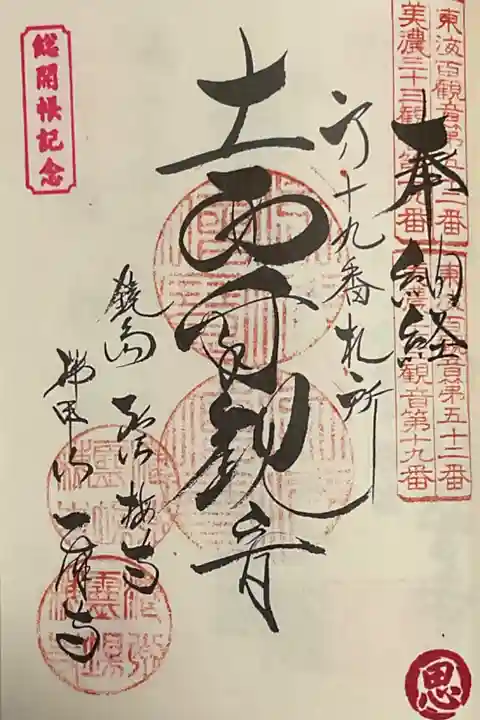 東海百観音第五十二番
美濃三十三観音第十九番
東海百観音第五十二番
美濃三十三観音第十九番
奉納経
第十九番札所
十一面
観音
鏡島
梅寺
瑞甲山 乙津寺
総開帳記念
思